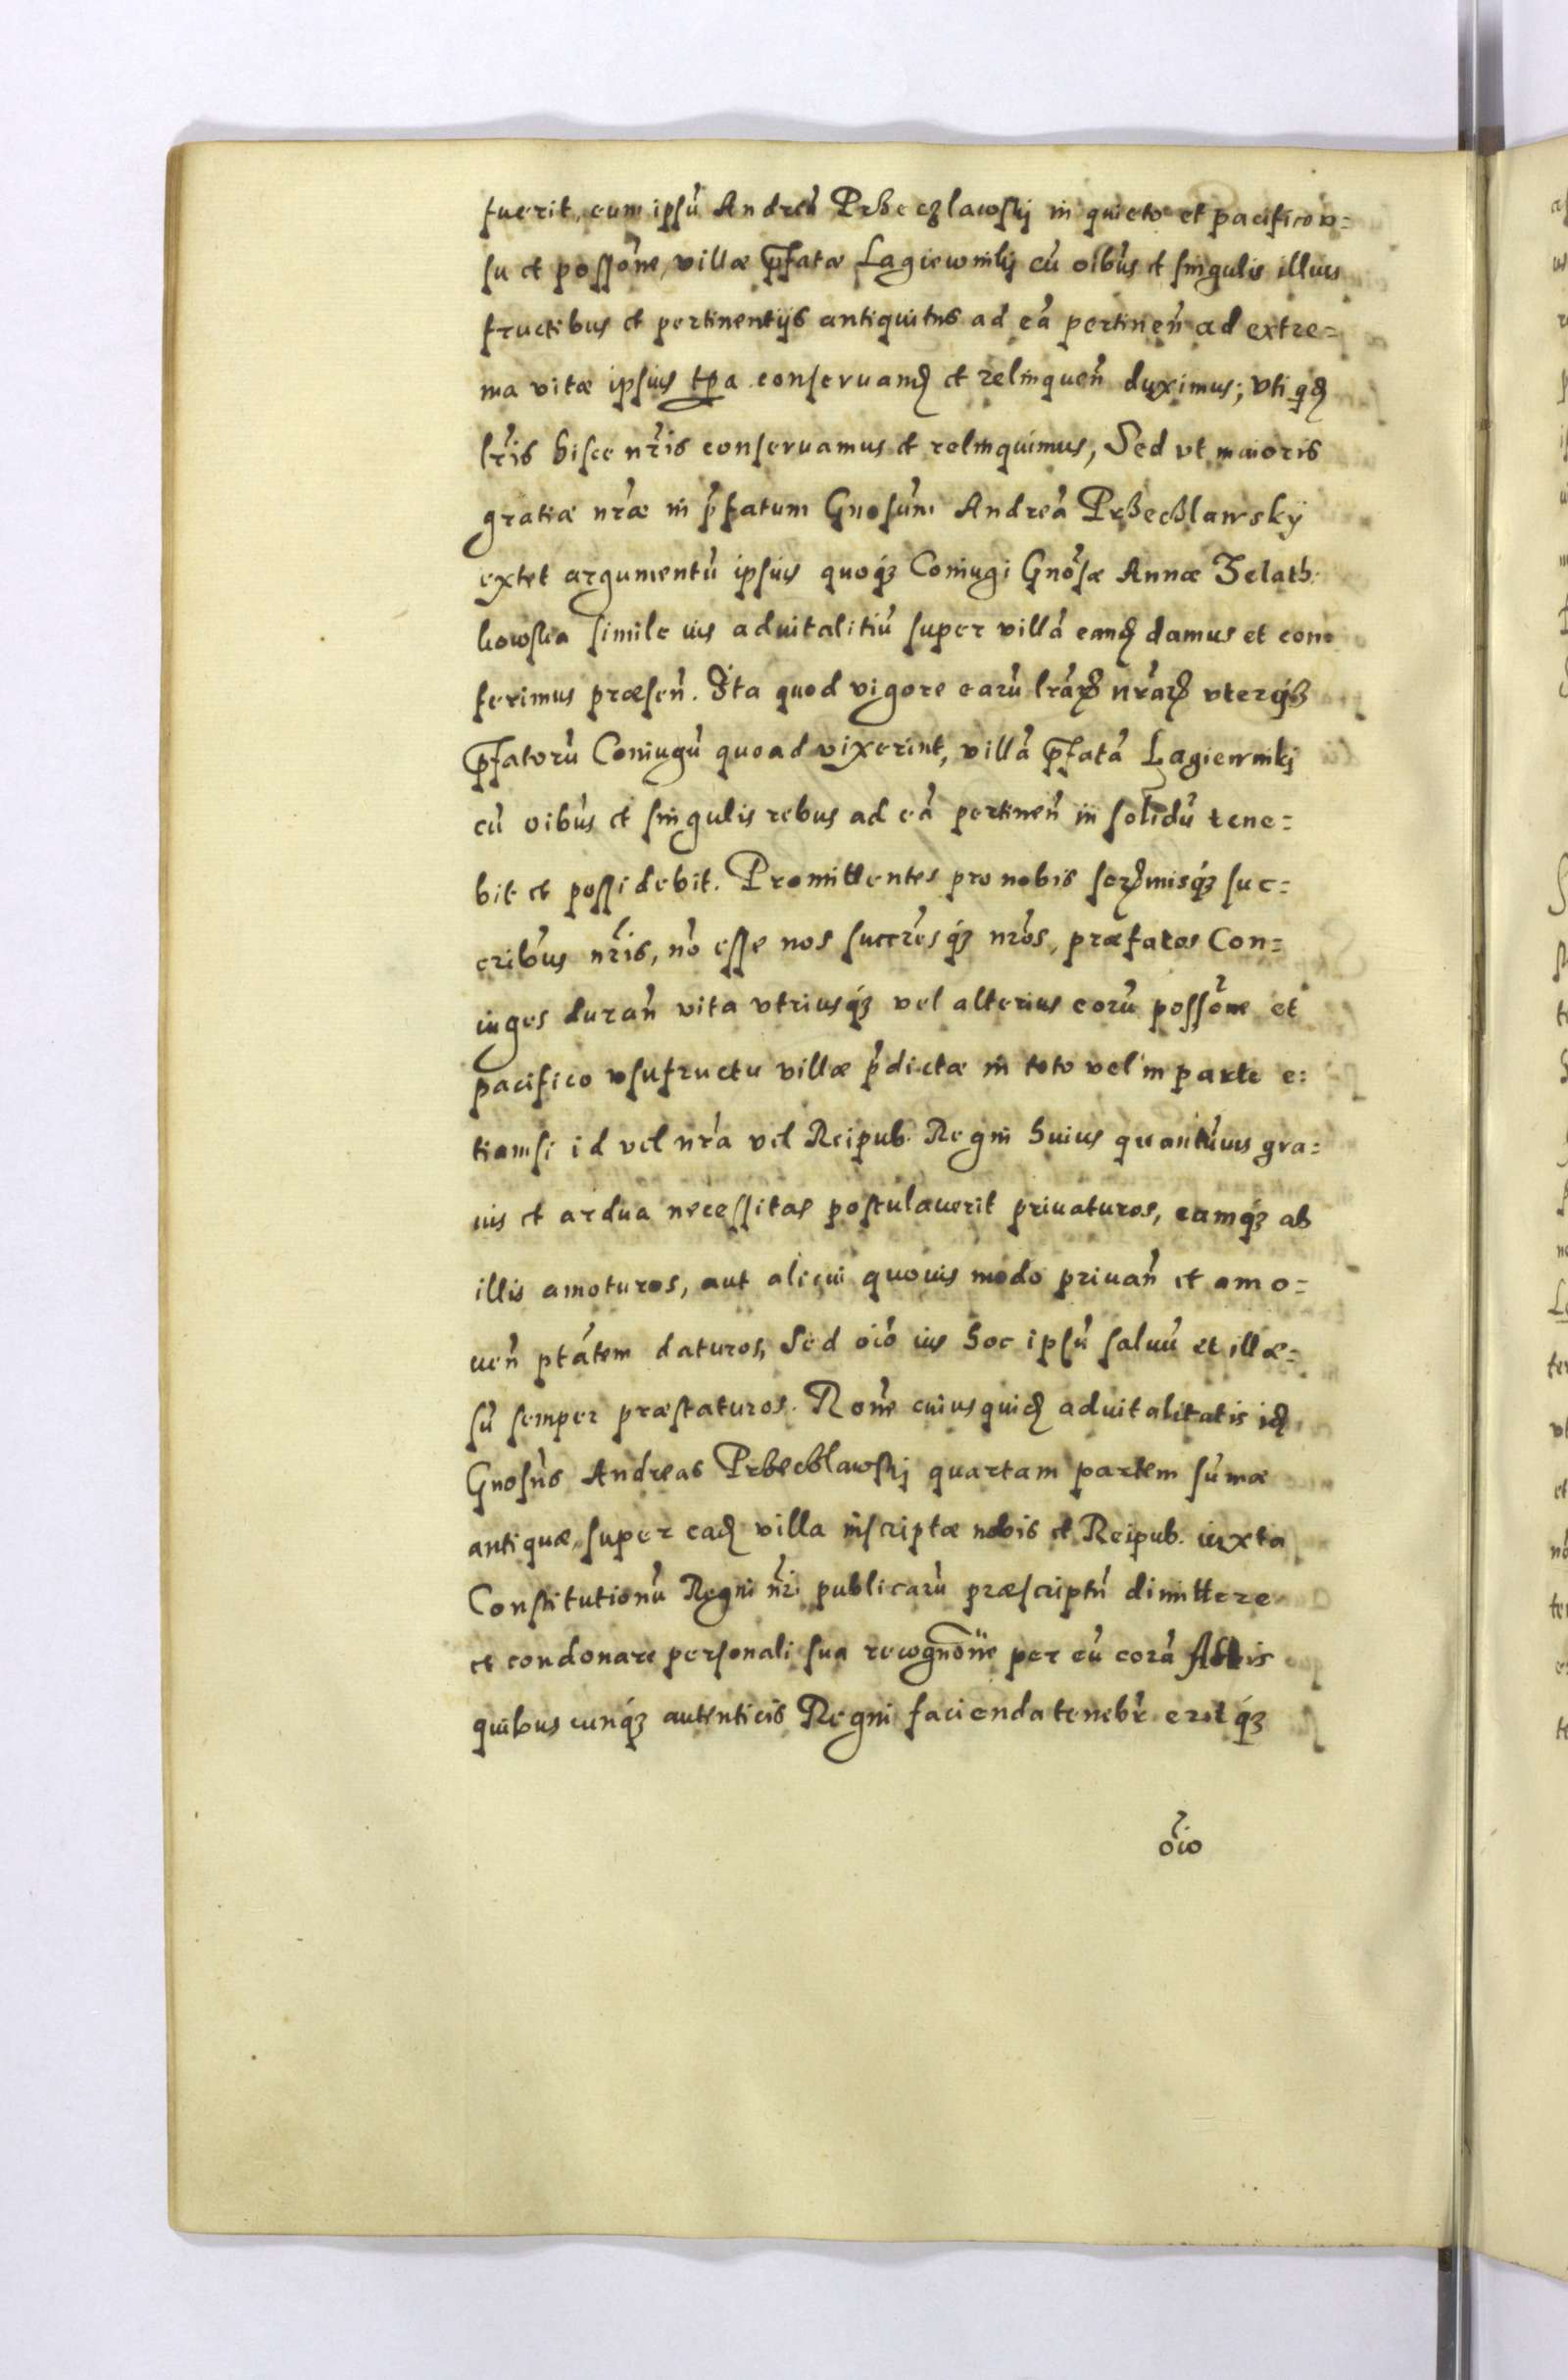 fuerit, eum ipsũ Andreã Prbeczlawskj in quieto et pacifico v=
su et possõne, villæ p̃fatæ Lagiewnikj cũ oĩbus et singulis illius
fructibus et pertinentijs antiquitus ad eã pertineñ ad extre=
ma vitæ ipsius tp̃a conseruanđ et relinqueñ duximus; vti qđ
lr̃is hisce nr̃is conseruamus et relinquimus, Sed vt maioris
gratiæ nr̃æ in p̃fatum Gnosũm Andreã Prßecßlawskÿ
extet argumentũ ipsius quoq́ꝫ Coniugi Gnõsæ Annæ Zelath
kowska simile ius aduitalitiũ super villã eanđ damus et con=
ferimus præseñ. Ita quod vigore earũ lr̃arꝝ nr̃arꝝ vterq́ꝫ
p̃fatorũ Coniugũ quoad vixerint, villã p̃fatã Lagiewnikj
cũ oĩbus et singulis rebus ad eã pertineñ in solidũ tene=
bit et possidebit. Promittentes pro nobis serꝝmisq́ꝫ suc=
cribũs nr̃is, nõ esse nos succr̃esq́ꝫ nr̃os, præfatos Con=
iuges durañ vita vtriusq́ꝫ vel alterius eorũ possõne et
pacifico vsufructu villæ p̃dictæ in toto vel in parte e=
tiamsi id vel nr̃a vel Reipub. Regni huius quantũuis gra=
uis et ardua necessitas postulauerit priuaturos, eamq́ꝫ ab
illis amoturos, aut alicui quouis modo priuañ et amo=
ueñ ptãtem daturos, Sed oĩo ius hoc ipsũ saluũ et illæ=
sũ semper præstaturos. Rõne cuiusquiđ aduitalitatis iđ
Gnosũs Andreas Prbecblawskj quartam partem sũmæ
antiquæ, super eađ villa inscriptæ nobis et Reipub. iuxta
Constitutionũ Regni nr̃i publicarũ præscriptũ dimittere
et condonare personali sua recognõne per eũ corã Actis
quibuscunq́ꝫ autenticis Regni facienda tenebr̃ eritq́ꝫ
oĩo